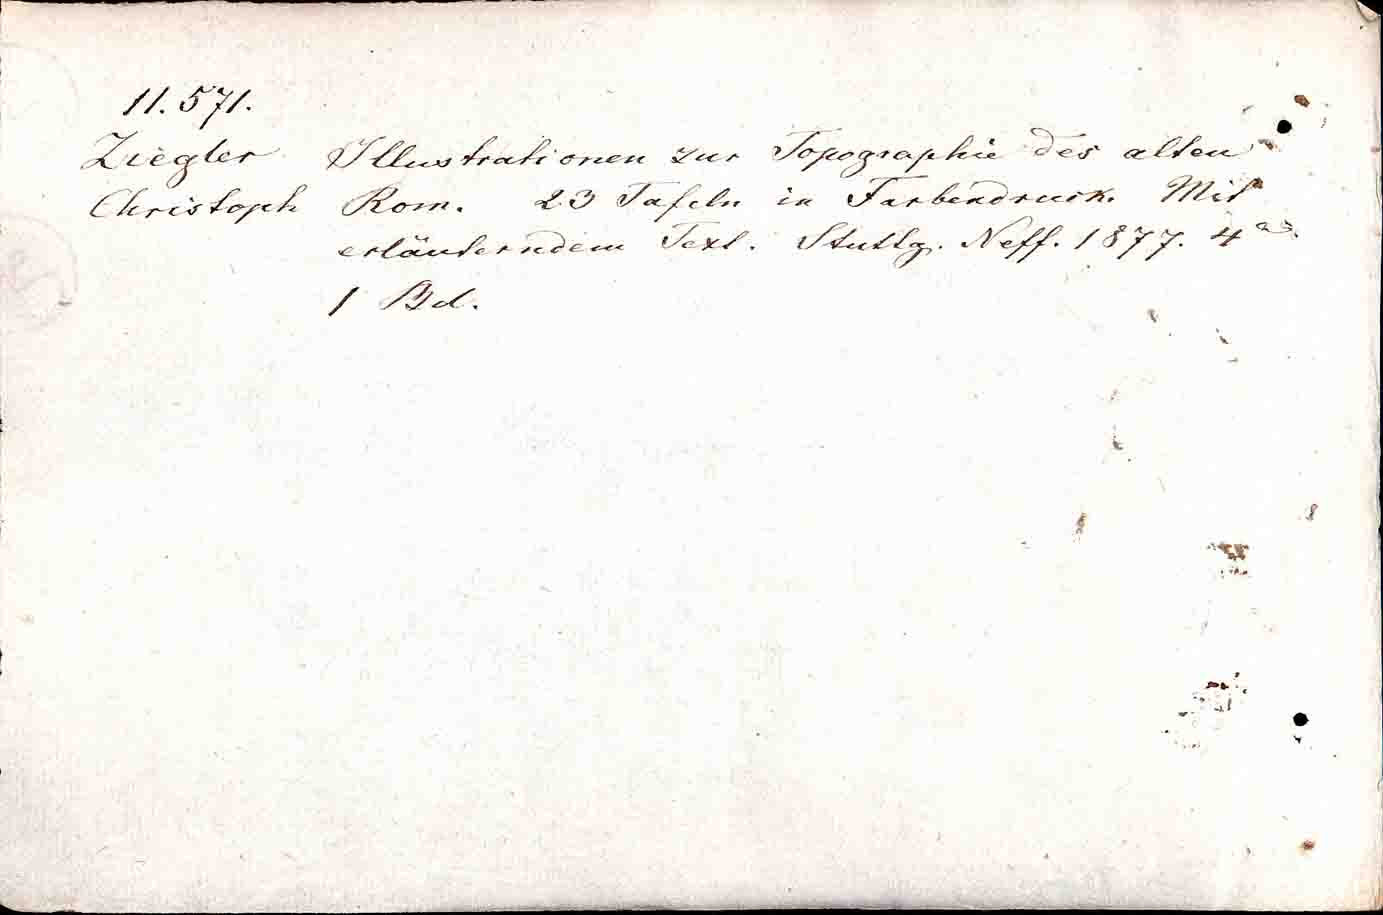 11.571.
Ziegler Illustrationen zur Topographie des alten
Christoph Rom. 23 Tafeln in Farbendruck. Mit
erläuterndem Text. Stuttg. Neff. 1877. 4
1 Bd.